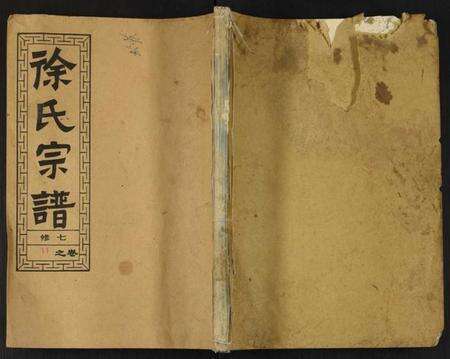 徐氏宗譜
七修
卷之